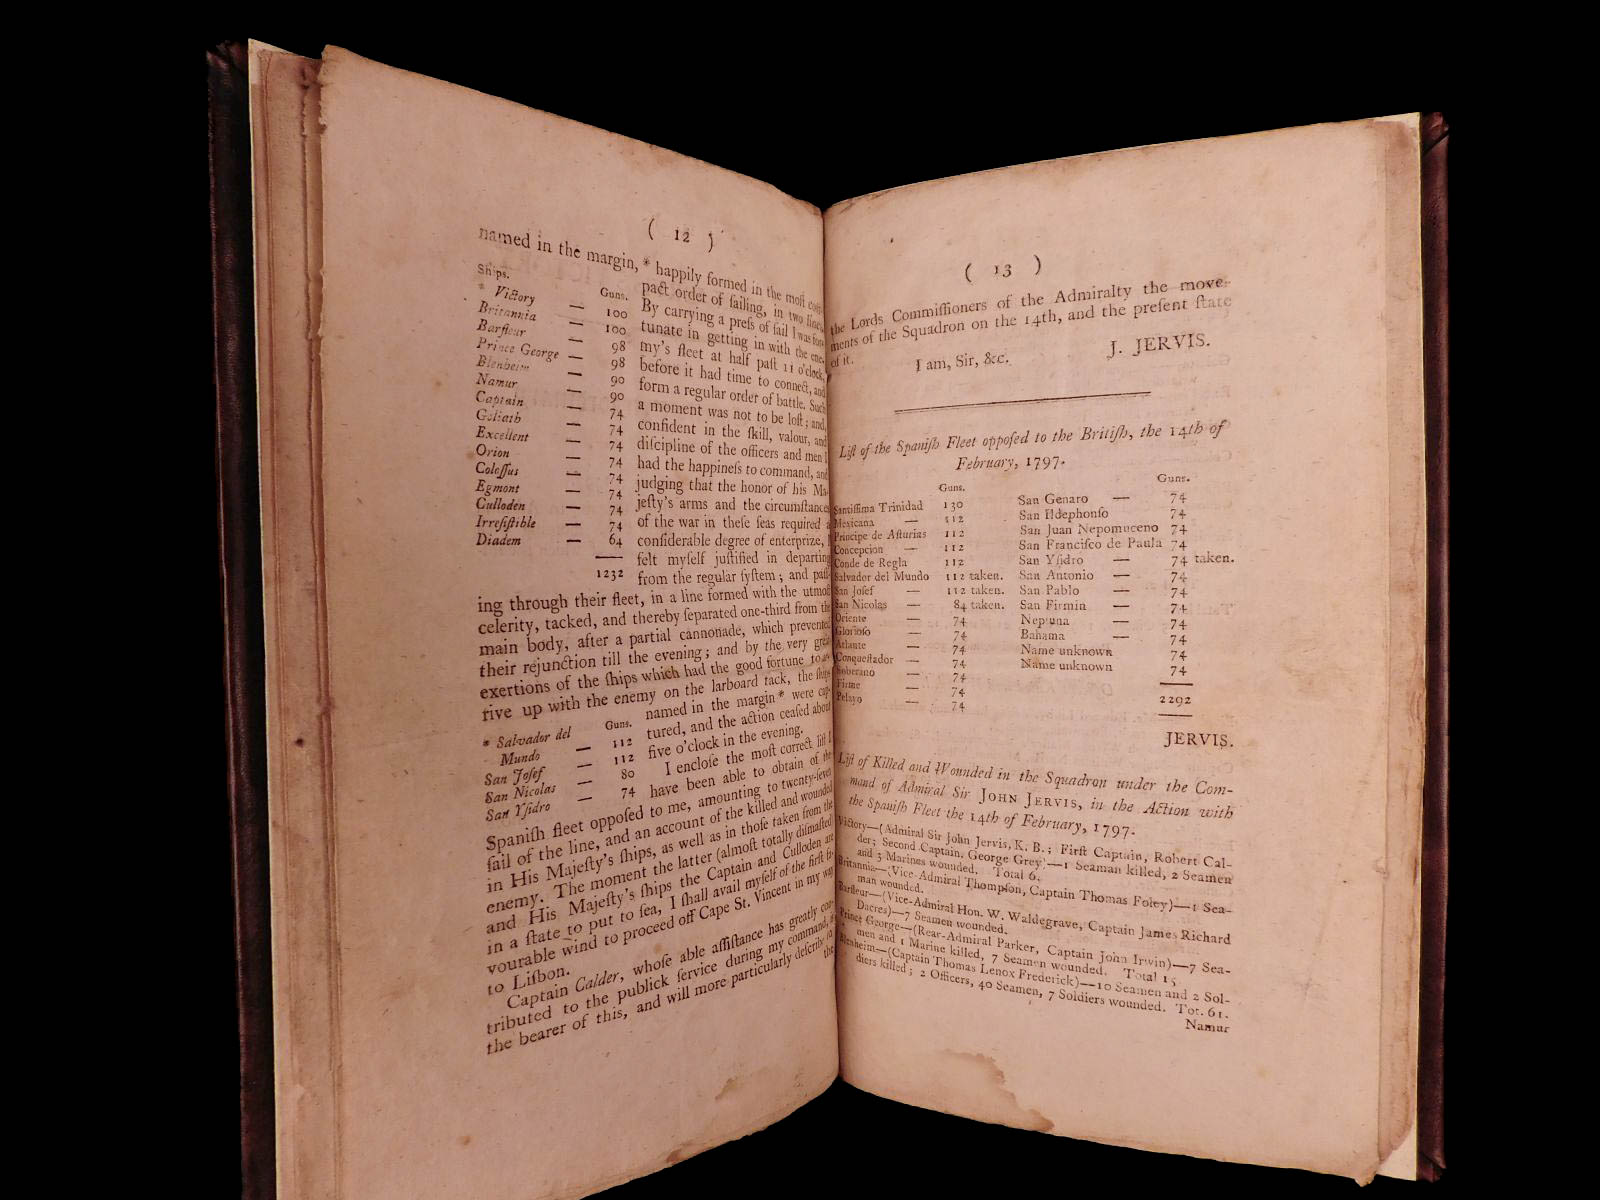 ( 12 )
named in the margin, * happily formed in the moſt com-
Ships. Guns.
* Victory — 100
Britannia — 100
Barfleur — 98
Prince George — 98
Blenheim — 90
Namur — 90
Captain — 74
Goliath — 74
Excellent — 74
Orion — 74
Coloſſus — 74
Egmont — 74
Culloden — 74
Irreſiſtible — 74
Diadem — 64
1232
pact order of ſailing, in two lines.
By carrying a preſs of ſail I was for-
tunate in getting in with the ene-
my's fleet at half paſt 11 o'clock,
before it had time to connect, and
form a regular order of battle. Such
a moment was not to be loſt; and,
confident in the ſkill, valour, and
diſcipline of the officers and men I
had the happineſs to command, and
judging that the honor of his Ma-
jeſty's arms and the circumſtances
of the war in theſe ſeas required a
conſiderable degree of enterprize, I
felt myſelf juſtified in departing
from the regular ſyſtem; and paſſ-
ing through their fleet, in a line formed with the utmoſt
celerity, tacked, and thereby ſeparated one-third from the
main body, after a partial cannonade, which prevented
their rejunction till the evening; and by the very great
exertions of the ſhips which had the good fortune to ar-
rive up with the enemy on the larboard tack, the ſhips
Guns.
* Salvador del
Mundo — 112
San Joſef — 112
San Nicolas — 80
San Yſidro — 74
named in the margin * were cap-
tured, and the action ceaſed about
five o'clock in the evening.
I encloſe the moſt correct liſt I
have been able to obtain of the
Spaniſh fleet oppoſed to me, amounting to twenty-ſeven
ſail of the line, and an account of the killed and wounded
in His Majeſty's ſhips, as well as in thoſe taken from the
enemy. The moment the latter (almoſt totally diſmaſted)
and His Majeſty's ſhips the Captain and Culloden are
in a ſtate to put to ſea, I ſhall avail myſelf of the firſt fa-
vourable wind to proceed off Cape St. Vincent in my way
to Liſbon.
Captain Calder, whoſe able aſſiſtance has greatly con-
tributed to the publick ſervice during my command, is
the bearer of this, and will more particularly deſcribe to
the
( 13 )
the Lords Commiſſioners of the Admiralty the move-
ments of the Squadron on the 14th, and the preſent ſtate
of it.
I am, Sir, &c.
J. JERVIS.
Liſt of the Spaniſh Fleet oppoſed to the Britiſh, the 14th of
February, 1797.
Guns.
Santiſſima Trinidad 130
Mexicana — 112
Principe de Aſturias 112
Concepcion — 112
Conde de Regla 112
Salvador del Mundo 112 taken.
San Joſef — 112 taken.
San Nicolas — 84 taken.
Oriente — 74
Glorioſo — 74
Atlante — 74
Conqueſtador — 74
Soberano — 74
Firme — 74
Pelayo — 74
Guns.
San Genaro — 74
San Ildephonſo 74
San Juan Nepomuceno 74
San Franciſco de Paula 74
San Yſidro — 74 taken.
San Antonio — 74
San Pablo — 74
San Firmin — 74
Neptuna — 74
Bahama — 74
Name unknown 74
Name unknown 74
2292
JERVIS.
Liſt of Killed and Wounded in the Squadron under the Com-
mand of Admiral Sir JOHN JERVIS, in the Action with
the Spaniſh Fleet the 14th of February, 1797.
Victory—(Admiral Sir John Jervis, K. B.; Firſt Captain, Robert Cal-
der; Second Captain, George Grey)—1 Seaman killed, 2 Seamen
and 3 Marines wounded. Total 6.
Britannia—(Vice-Admiral Thompſon, Captain Thomas Foley)—1 Sea-
man wounded.
Barfleur—(Vice-Admiral Hon. W. Waldegrave, Captain James Richard
Dacres)—7 Seamen wounded.
Prince George—(Rear-Admiral Parker, Captain John Irwin)—7 Sea-
men and 1 Marine killed, 7 Seamen wounded. Total 15
Blenheim—(Captain Thomas Lenox Frederick)—10 Seamen and 2 Sol-
diers killed; 2 Officers, 40 Seamen, 7 Soldiers wounded. Tot. 61.
Namur